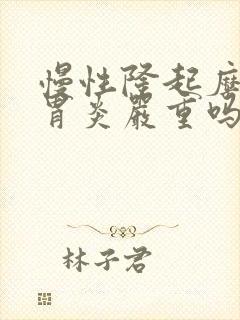 慢性隆起糜
胃炎严重吗
林子君